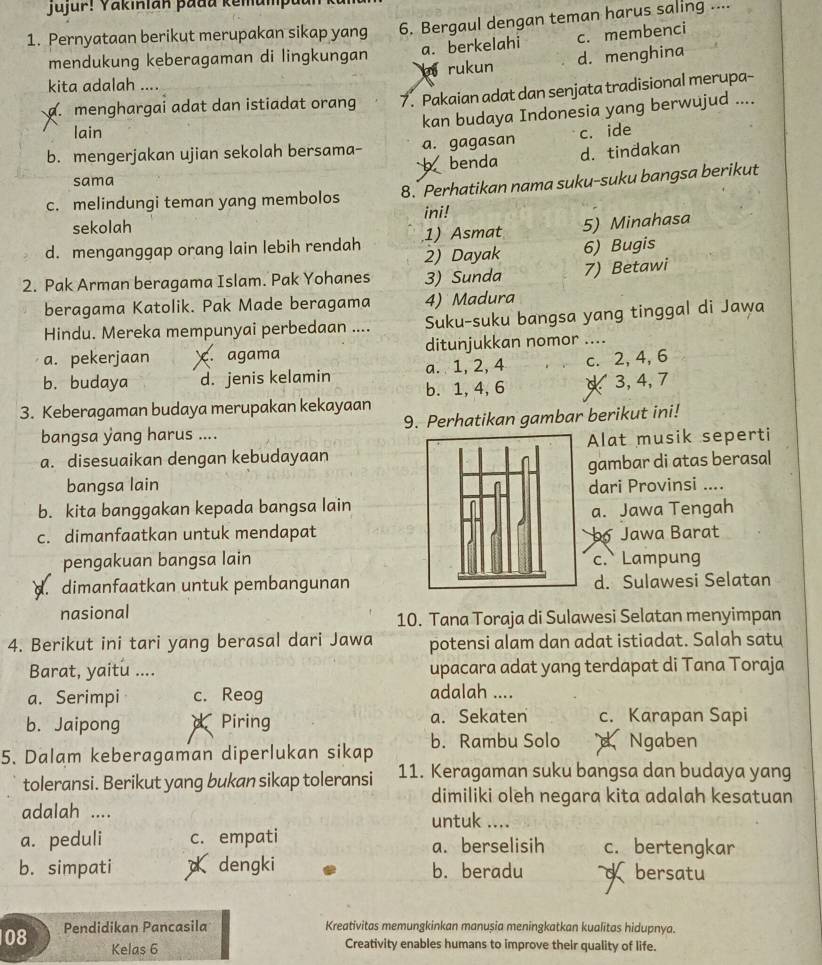 jujur! Yakinlah pada
1. Pernyataan berikut merupakan sikap yang
mendukung keberagaman di lingkungan
kita adalah ....
a. menghargai adat dan istiadat orang
lain
b. mengerjakan ujian sekolah bersama-
sama
c. melindungi teman yang membolos
sekolah
d. menganggap orang lain lebih rendah
2. Pak Arman beragama Islam. Pak Yohanes
beragama Katolik. Pak Made beragama
Hindu. Mereka mempunyai perbedaan ....
a. pekerjaan c. agama
b. budaya d. jenis kelamin
3. Keberagaman budaya merupakan kekayaan
bangsa yang harus ....
a. disesuaikan dengan kebudayaan
bangsa lain
b. kita banggakan kepada bangsa lain
c. dimanfaatkan untuk mendapat
pengakuan bangsa lain
d. dimanfaatkan untuk pembangunan
nasional
4. Berikut ini tari yang berasal dari Jawa
Barat, yaitu ....
a. Serimpi c. Reog
b. Jaipong d. Piring
5. Dalam keberagaman diperlukan sikap
toleransi. Berikut yang bukan sikap toleransi
adalah ....
a. peduli c. empati
b. simpati d. dengki
6. Bergaul dengan teman harus saling ....
a. berkelahi c. membenci
b. rukun d. menghina
7. Pakaian adat dan senjata tradisional merupa-
kan budaya Indonesia yang berwujud ....
a. gagasan c. ide
b. benda d. tindakan
8. Perhatikan nama suku-suku bangsa berikut
ini!
1) Asmat 5) Minahasa
2) Dayak 6) Bugis
3) Sunda 7) Betawi
4) Madura
Suku-suku bangsa yang tinggal di Jawa
ditunjukkan nomor ....
a. 1, 2, 4 c. 2, 4, 6
b. 1, 4, 6 d. 3, 4, 7
9. Perhatikan gambar berikut ini!
Alat musik seperti
gambar di atas berasal
dari Provinsi ....
a. Jawa Tengah
b. Jawa Barat
c. Lampung
d. Sulawesi Selatan
10. Tana Toraja di Sulawesi Selatan menyimpan
potensi alam dan adat istiadat. Salah satu
upacara adat yang terdapat di Tana Toraja
adalah ....
a. Sekaten c. Karapan Sapi
b. Rambu Solo d. Ngaben
11. Keragaman suku bangsa dan budaya yang
dimiliki oleh negara kita adalah kesatuan
untuk ....
a. berselisih c. bertengkar
b. beradu d. bersatu
108 Pendidikan Pancasila
Kelas 6
Kreativitas memungkinkan manusia meningkatkan kualitas hidupnya.
Creativity enables humans to improve their quality of life.